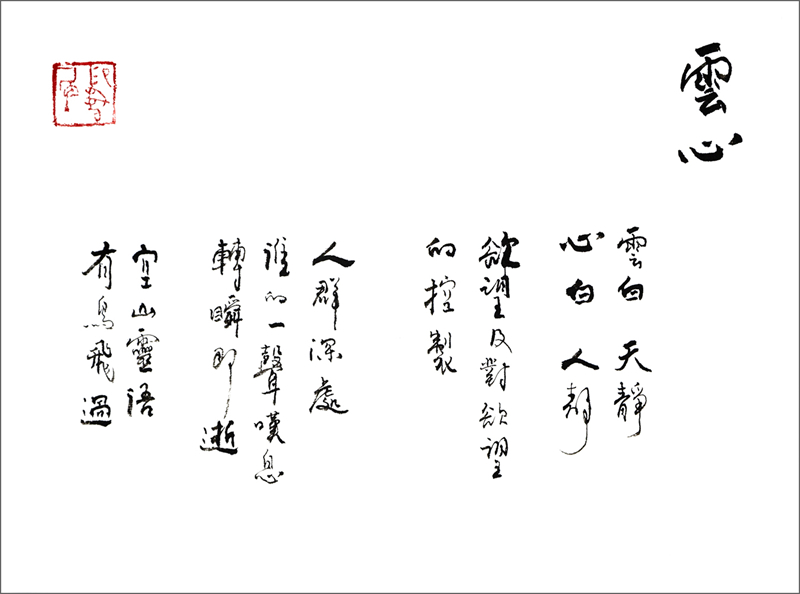 雲心
雲白 天靜
心白 人靜
慾望及對慾望
的控製
人群深處
誰的一聲嘆息
轉瞬即逝
空山靈語
有鳥飛過